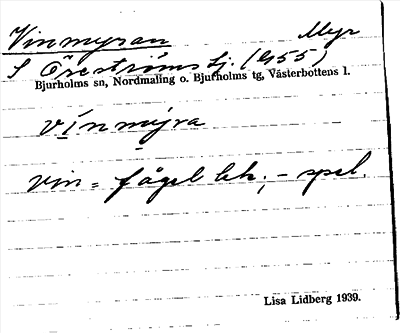 Vinmyran Myr
S Öreströms tj. (G55)
Bjurholms sn, Nordmaling o. Bjurholms tg, Västerbottens l.
vínmýra
vin = fågel lek; – spel.
Lisa Lidberg 1939.